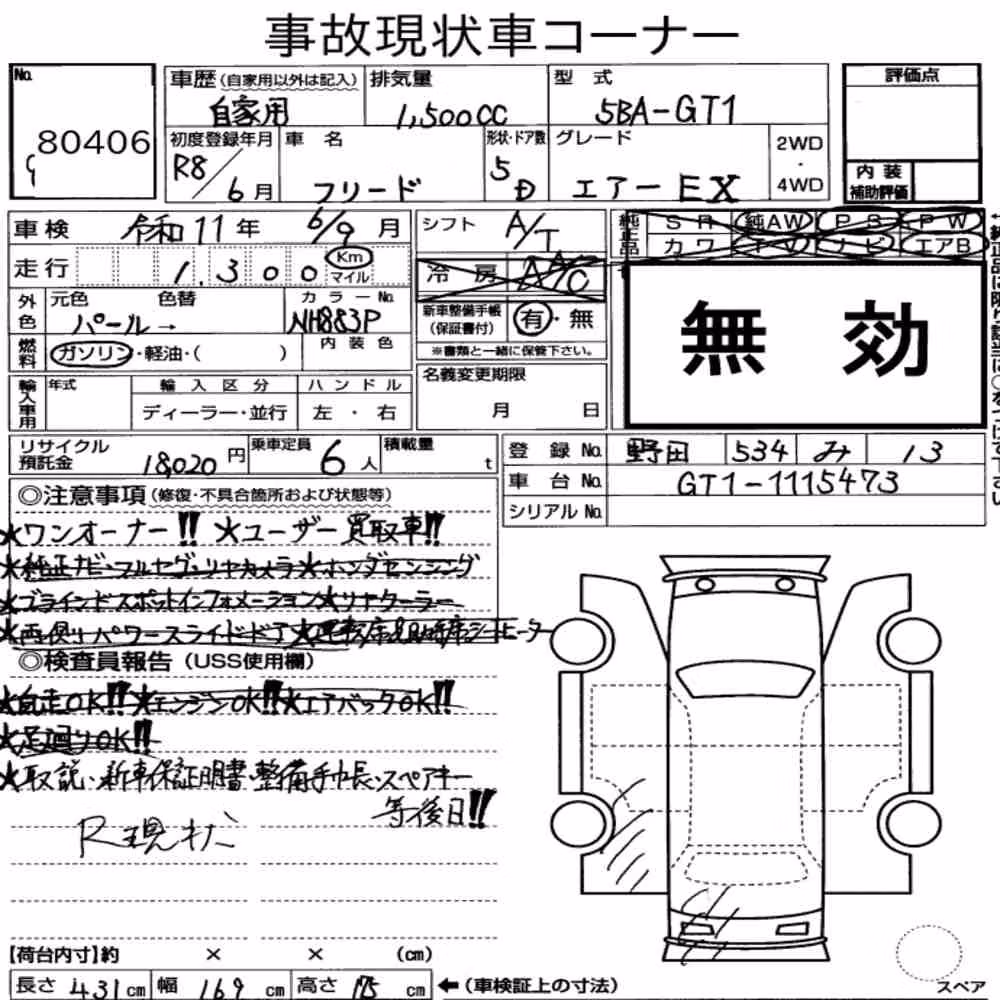 事故現状車コーナー
No. 80406
車歴 (自家用以外は記入) 自家用
排気量 1,500CC
型式 5BA-GT1
評価点
初度登録年月 R8/6月
車名 フリード
形状・ドア数 5D
グレード エアーEX
2WD・4WD
内装補助評価
車検 令和11年 6/9月
シフト A/T
純正品 SR 純AW PS PW
カワ TV ナビ エアB
走行 1,300 Km マイル
冷房 A/C
外色 元色 パール→ 色替
カラーNo. NH883P
新車整備手帳(保証書付) 有・無
※書類と一緒に保管下さい。
無効
燃料 ガソリン・軽油・( )
内装色
名義変更期限 月 日
輸入車用 年式 輸入区分 ディーラー・並行 ハンドル 左・右
リサイクル預託金 18,020円
乗車定員 6人
積載量 t
登録No. 野田 534 み 13
車台No. GT1-1115473
シリアルNo.
◎注意事項(修復・不具合箇所および状態等)
★ワンオーナー!! ★ユーザー買取車!!
★純正ナビ・フルセグ・リヤカメラ★ホンダセンシング
★ブラインドスポットインフォメーション★リヤクーラー
★両側パワースライドドア★運転席&助手席シートヒーター
◎検査員報告(USS使用欄)
★自走OK!!★エンジンOK!!★エアバックOK!!
★足廻りOK!!
★取説・新車保証明書・整備手帳・スペアキー
等後日!!
R現状
【荷台内寸】約 × × (cm)
長さ 431cm 幅 169cm 高さ 175cm ←(車検証上の寸法)
スペア